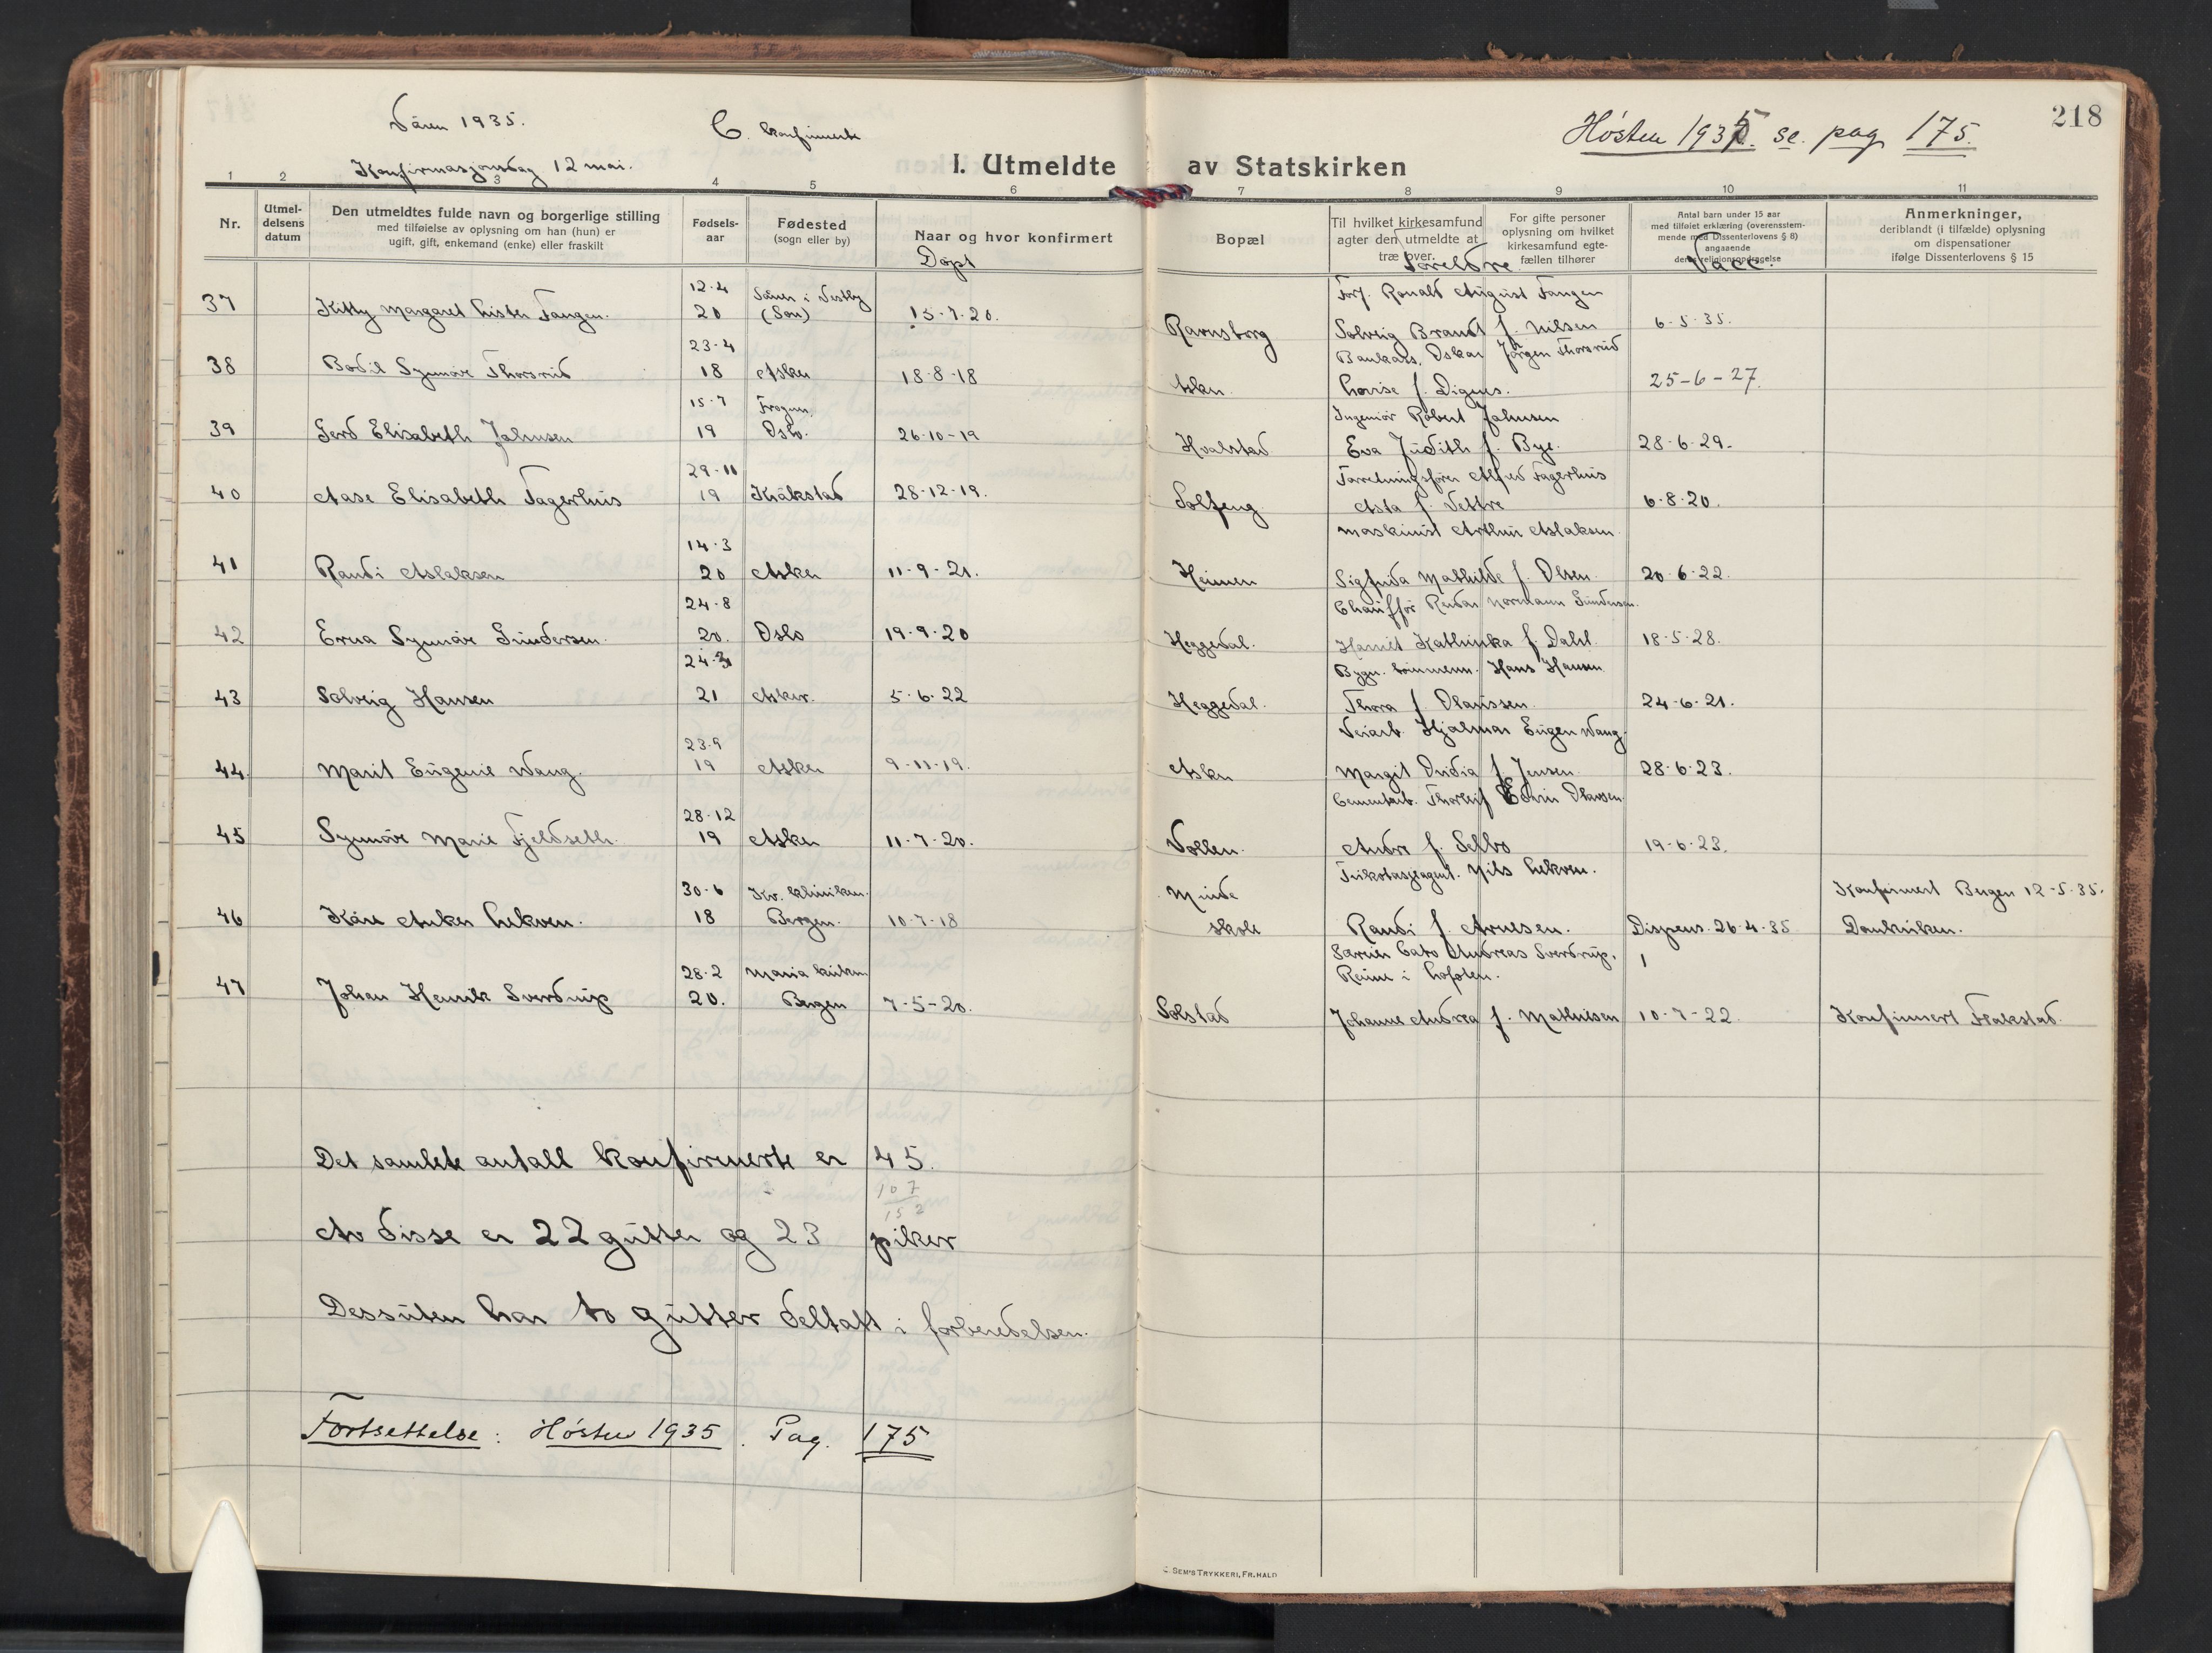 218
Våren 1935.
C. Konfirmerte
Høsten 1935. se. pag 175.
Konfirmasjonsdag 12 mai.
I. Utmeldte av Statskirken
1 2 3 4 5 6 7 8 9 10 11
Nr.
Utmel-
delsens
datum
Den utmeldtes fulde navn og borgerlige stilling
med tilføielse av oplysning om han (hun) er
ugift, gift, enkemand (enke) eller fraskilt
Fødsels-
aar
Fødested
(sogn eller by)
Naar og hvor konfirmert
Døpt
Bopæl
Til hvilket kirkesamfund
agter den utmeldte at
træ over.
Foreldre
For gifte personer
oplysning om hvilket
kirkesamfund egte-
fællen tilhører
Antal barn under 15 aar
med tilføiet erklæring (overensstem-
mende med Dissenterlovens § 8)
angaaende
deres religionsopdragelse
Vacc.
Anmerkninger,
deriblandt (i tilfælde) oplysning
om dispensationer
ifølge Dissenterlovens § 15
12-4 Såner i Vestby Forf. Ronald August Fangen
37 Kitty Margaret Lister Fangen. 20 (Son) 15-7-20. Ravnsborg Solveig Brandt f. Nilsen 6-5-35.
23-4 Bankass. Oskar Jørgen Thorsrud
38 Bodil Synnøve Thorsrud 18 Asker 18-8-18 Asker. Lovise f. Dignes. 25-6-27.
15-7 Frogner, Ingeniør Robert Jahnsen
39 Gerd Elisabeth Jahnsen 19 Oslo. 26-10-19 Hvalstad Eva Judith f. Bye. 28-6-29.
29-11 Forretningsfører Alfred Fagerhus
40 Aase Elisabeth Fagerhus 19 Kråkstad 28-12-19. Solfeng Asta f. Vettre 6-8-20.
14-3 Maskinist Arthur Aslaksen
41 Randi Aslaksen 20 Asker 11-9-21. Heimen Sigfrida Mathilde f. Olsen. 20-6-22.
24-8 Chauffør Reidar Normann Gundersen.
42 Erna Synnøve Gundersen. 20. Oslo 19-9-20 Heggedal. Harriet Kathinka f. Dahl. 18-5-28.
24- Bygn. tømmerm. Hans Hansen
43 Solveig Hansen 21 Asker. 5-6-22 Heggedal. Thora f. Olaussen. 24-6-21.
23-9 Veiarb. Hjalmar Eugen Wang
44. Marit Eugenie Wang. 19 Asker 9-11-19. Asker Margit Ovidia f. Jensen. 28-6-23.
28-12 Cementarb. Thorleif Edvin Olavsen.
45 Synnøve Marie Fjeldseth. 19 Asker 11-7-20. Vollen. Andrea f. Selbo 19-6-23.
30-6 Kv. kliniken. Minde Trikotasjeagent. Nils Lekven. Konfirmert Bergen 12-5-35.
46 Kåre Anker Lekven. 18 Bergen. 10-7-18 skole Randi f. Arnesen. Dispens. 26-4-35 Domkirken.
28-2 Maria kirken Cato Andreas Sverdrup,
Reine i Lofoten.
47 Johan Henrik Sverdrup 20. Bergen 7-5-20. Solstad Johanne Andrea f. Mathisen 10-7-22. Konfirmert Flakstad.
Det samlete antall konfirmerte er 45.
107
152
Av disse er 22 gutter og 23 piker
Dessuten har to gutter deltatt i forberedelsen.
Fortsettelse: Høsten 1935. Pag. 175
SEM'S TRYKKERI, FR.HALD